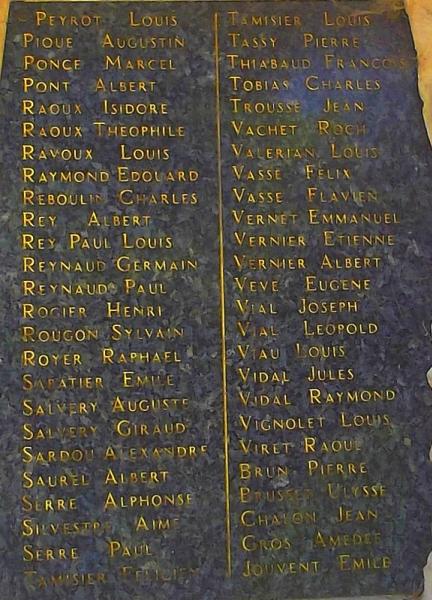 PEYROT LOUIS
PIQUE AUGUSTIN
PONCE MARCEL
PONT ALBERT
RAOUX ISIDORE
RAOUX THEOPHILE
RAVOUX LOUIS
RAYMOND EDOUARD
REBOULIN CHARLES
REY ALBERT
REY PAUL LOUIS
REYNAUD GERMAIN
REYNAUD PAUL
ROGIER HENRI
ROUGON SYLVAIN
ROYER RAPHAEL
SABATIER EMILE
SALVERY AUGUSTE
SALVERY GIRAUD
SARDOU ALEXANDRE
SAUREL ALBERT
SERRE ALPHONSE
SILVESTRE AIME
SERRE PAUL
TAMISIER FELICIEN
TAMISIER LOUIS
TASSY PIERRE
THIABAUD FRANCOIS
TOBIAS CHARLES
TROUSSE JEAN
VACHET ROCH
VALERIAN LOUIS
VASSE FELIX
VASSE FLAVIEN
VERNET EMMANUEL
VERNIER ETIENNE
VERNIER ALBERT
VEVE EUGENE
VIAL JOSEPH
VIAL LEOPOLD
VIAU LOUIS
VIDAL JULES
VIDAL RAYMOND
VIGNOLET LOUIS
VIRET RAOUL
BRUN PIERRE
BRUSSET ULYSSE
CHALON JEAN
GROS AMEDEE
JOUVENT EMILE